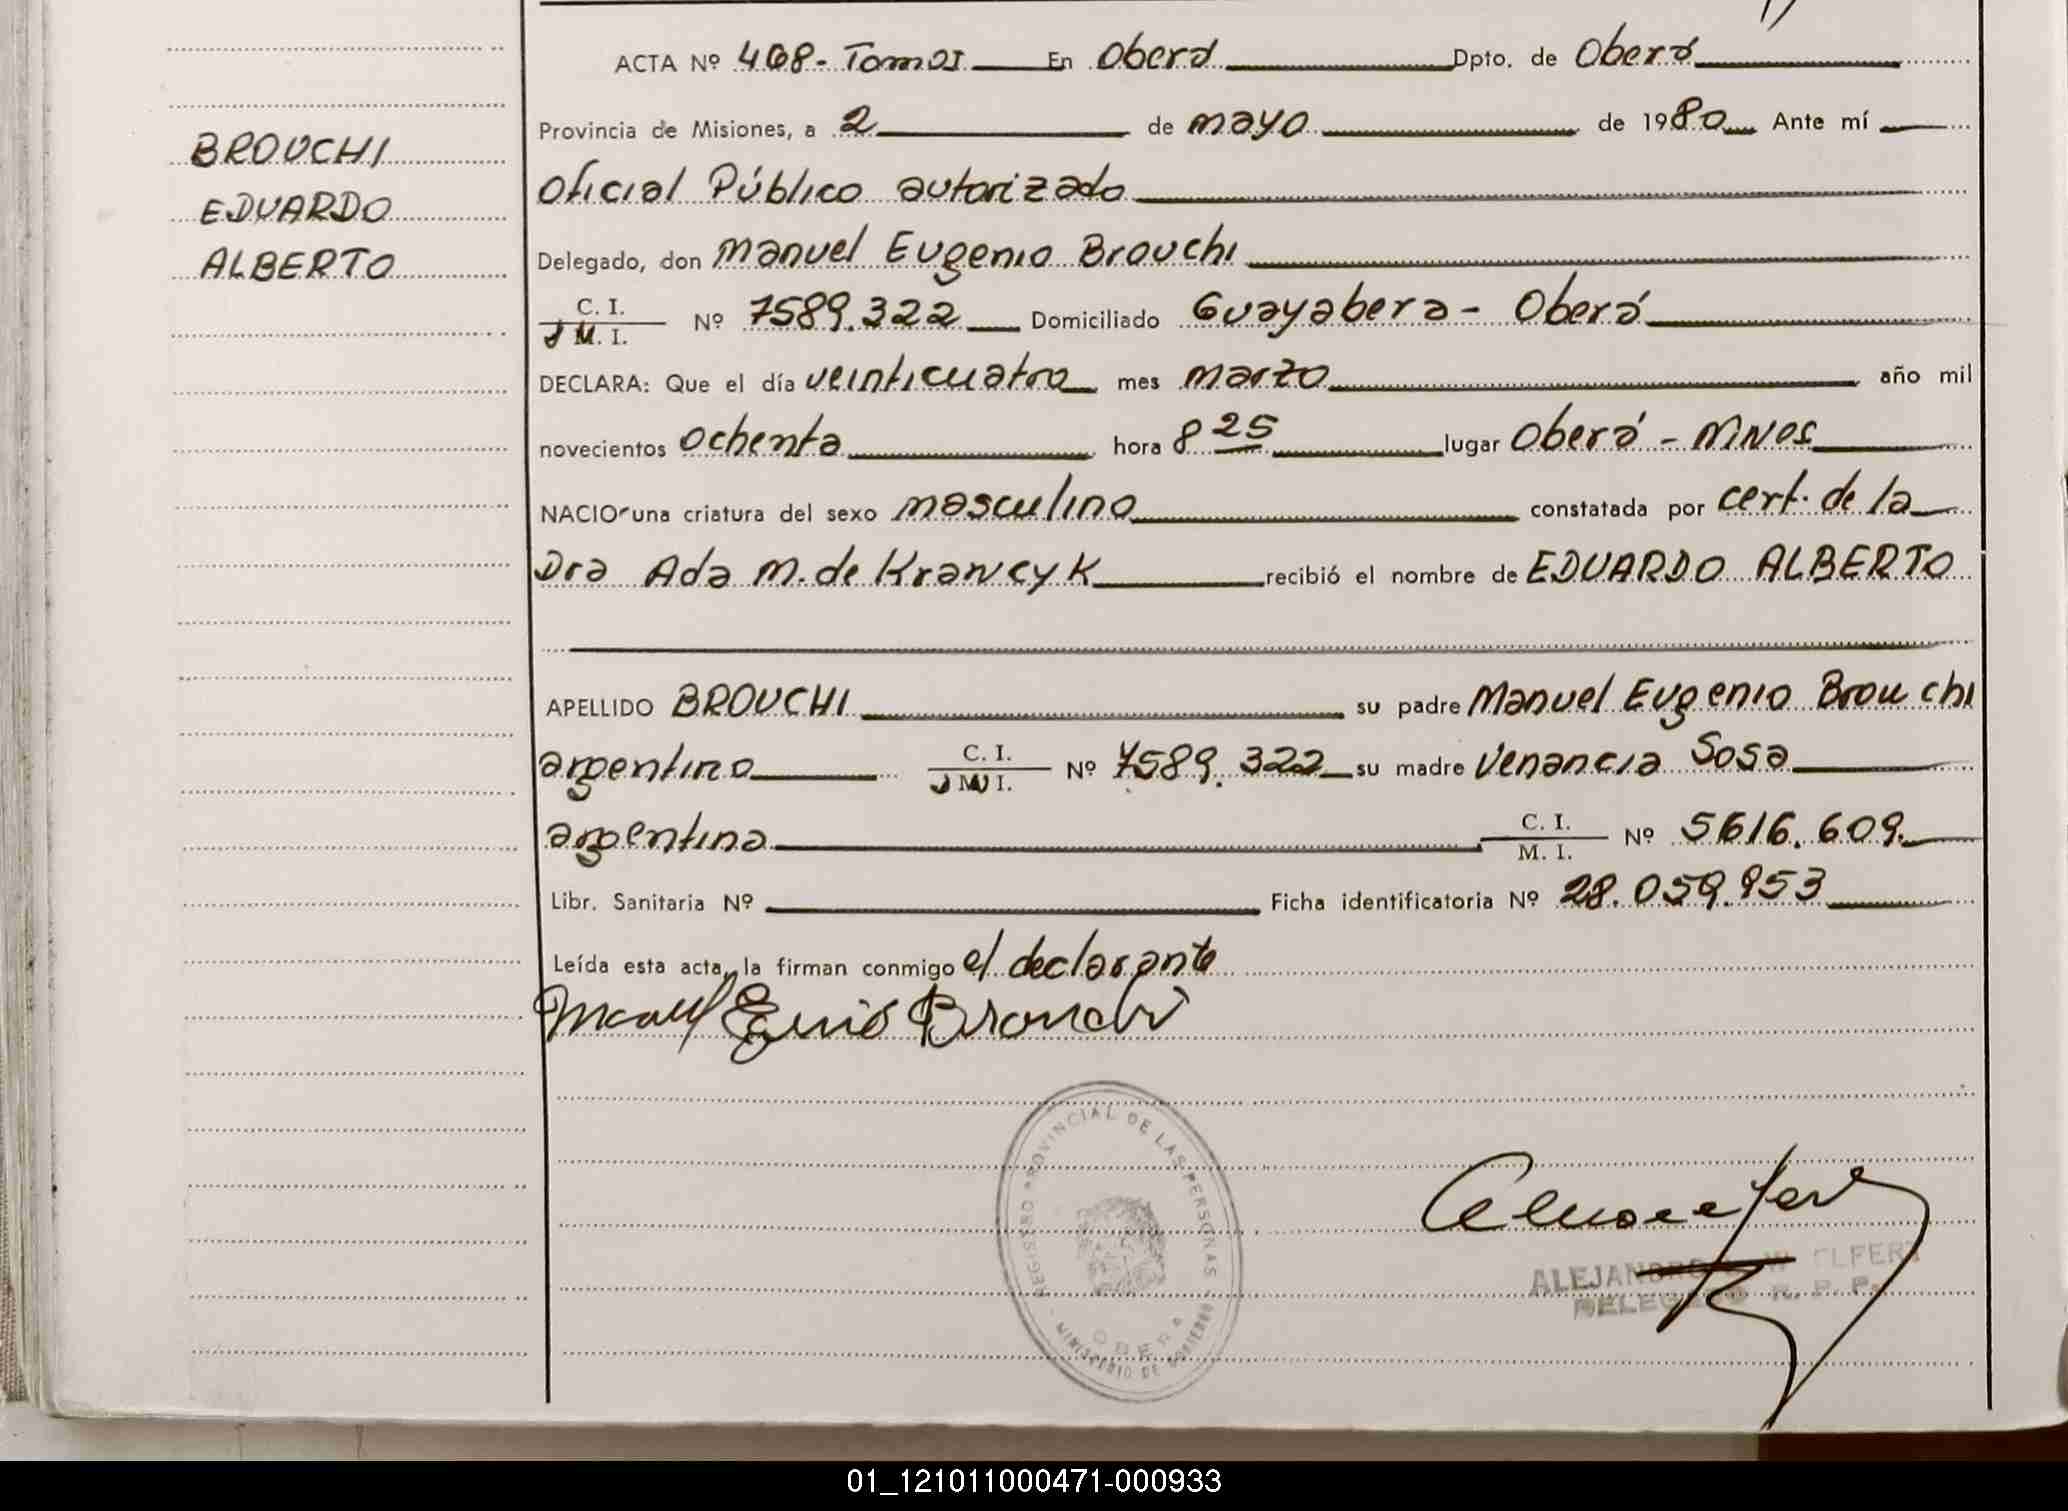 BROUCHI
EDUARDO
ALBERTO
ACTA Nº 468- Tomo I En Oberá Dpto. de Oberá
Provincia de Misiones, a 2 de mayo de 1980 Ante mí
Oficial Público autorizado
Delegado, don Manuel Eugenio Brouchi
C. I.
M. I. Nº 7589.322 Domiciliado Guayabera - Oberá
DECLARA: Que el día veinticuatro mes marzo año mil
novecientos ochenta hora 8 25 lugar Oberá - MNES
NACIO una criatura del sexo masculino constatada por cert. de la
Dra Ada M. de Krawcyk recibió el nombre de EDUARDO ALBERTO
APELLIDO BROUCHI su padre Manuel Eugenio Brouchi
argentino C. I. M. I. Nº 7589.322 su madre Venancia Sosa
argentina C. I. M. I. Nº 5616.609.
Libr. Sanitaria Nº Ficha identificatoria Nº 28.059.953
Leída esta acta, la firman conmigo el declarante
Manuel Eugenio Brouchi
REGISTRO PROVINCIAL DE LAS PERSONAS
OBERA
MINISTERIO DE GOBIERNO
ALEJANDRO W ELFERT
DELEGADO R. P. P.
01_121011000471-000933